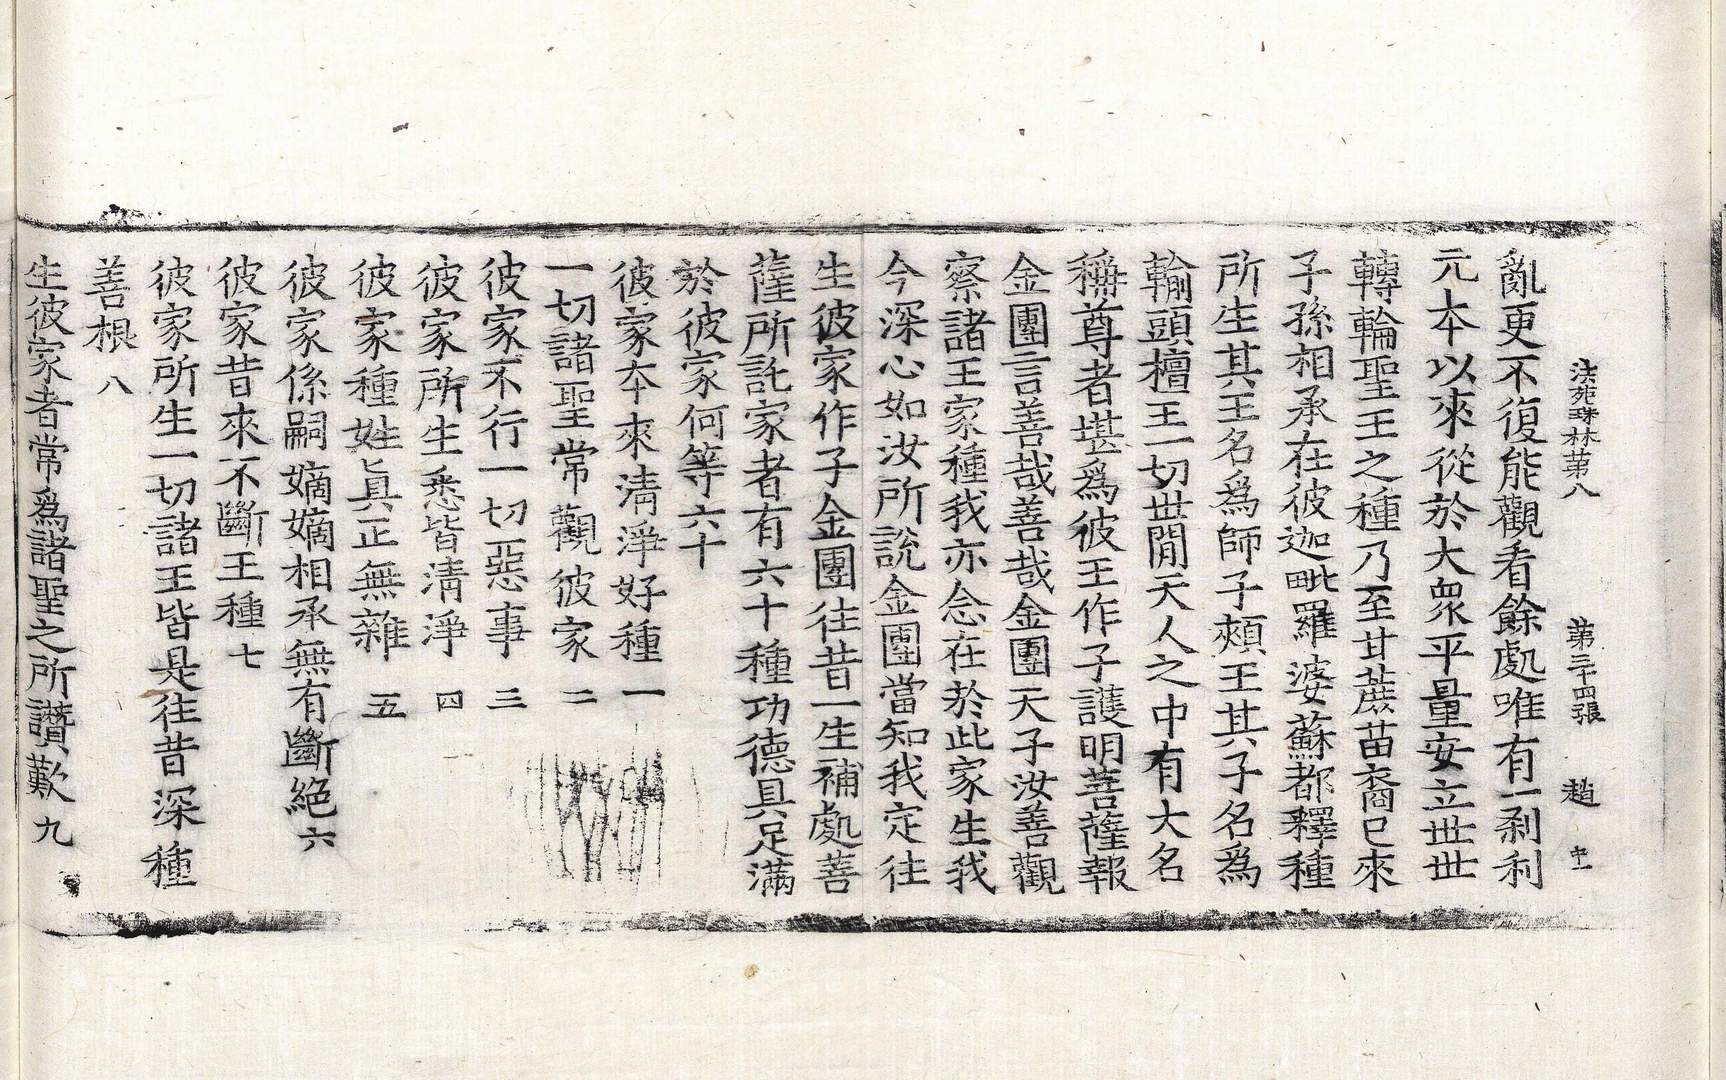 法苑珠林第八 第三十四張 趙
亂更不復能觀看餘處唯有一剎利
元本以來從於大衆平量安立世世
轉輪聖王之種乃至甘蔗苗裔已來
子孫相承在彼迦毗羅婆蘇都釋種
所生其王名爲師子頰王其子名爲
輸頭檀王一切世間天人之中有大名
稱尊者堪爲彼王作子護明菩薩報
金團言善哉善哉金團天子汝善觀
察諸王家種我亦念在於此家生我
今深心如汝所說金團當知我定往
生彼家作子金團往昔一生補處菩
薩所託家者有六十種功德具足滿
於彼家何等六十
彼家本來清淨好種 一
一切諸聖常觀彼家 二
彼家不行一切惡事 三
彼家所生悉皆清淨 四
彼家種姓眞正無雜 五
彼家係嗣嫡嫡相承無有斷絕 六
彼家昔來不斷王種 七
彼家所生一切諸王皆是往昔深種
善根 八
生彼家者常爲諸聖之所讚歎 九